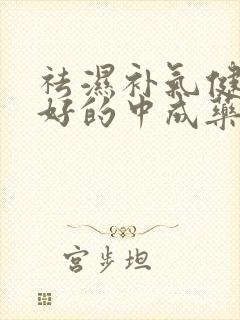 祛濕补氣健
好的中成藥
宮步坦